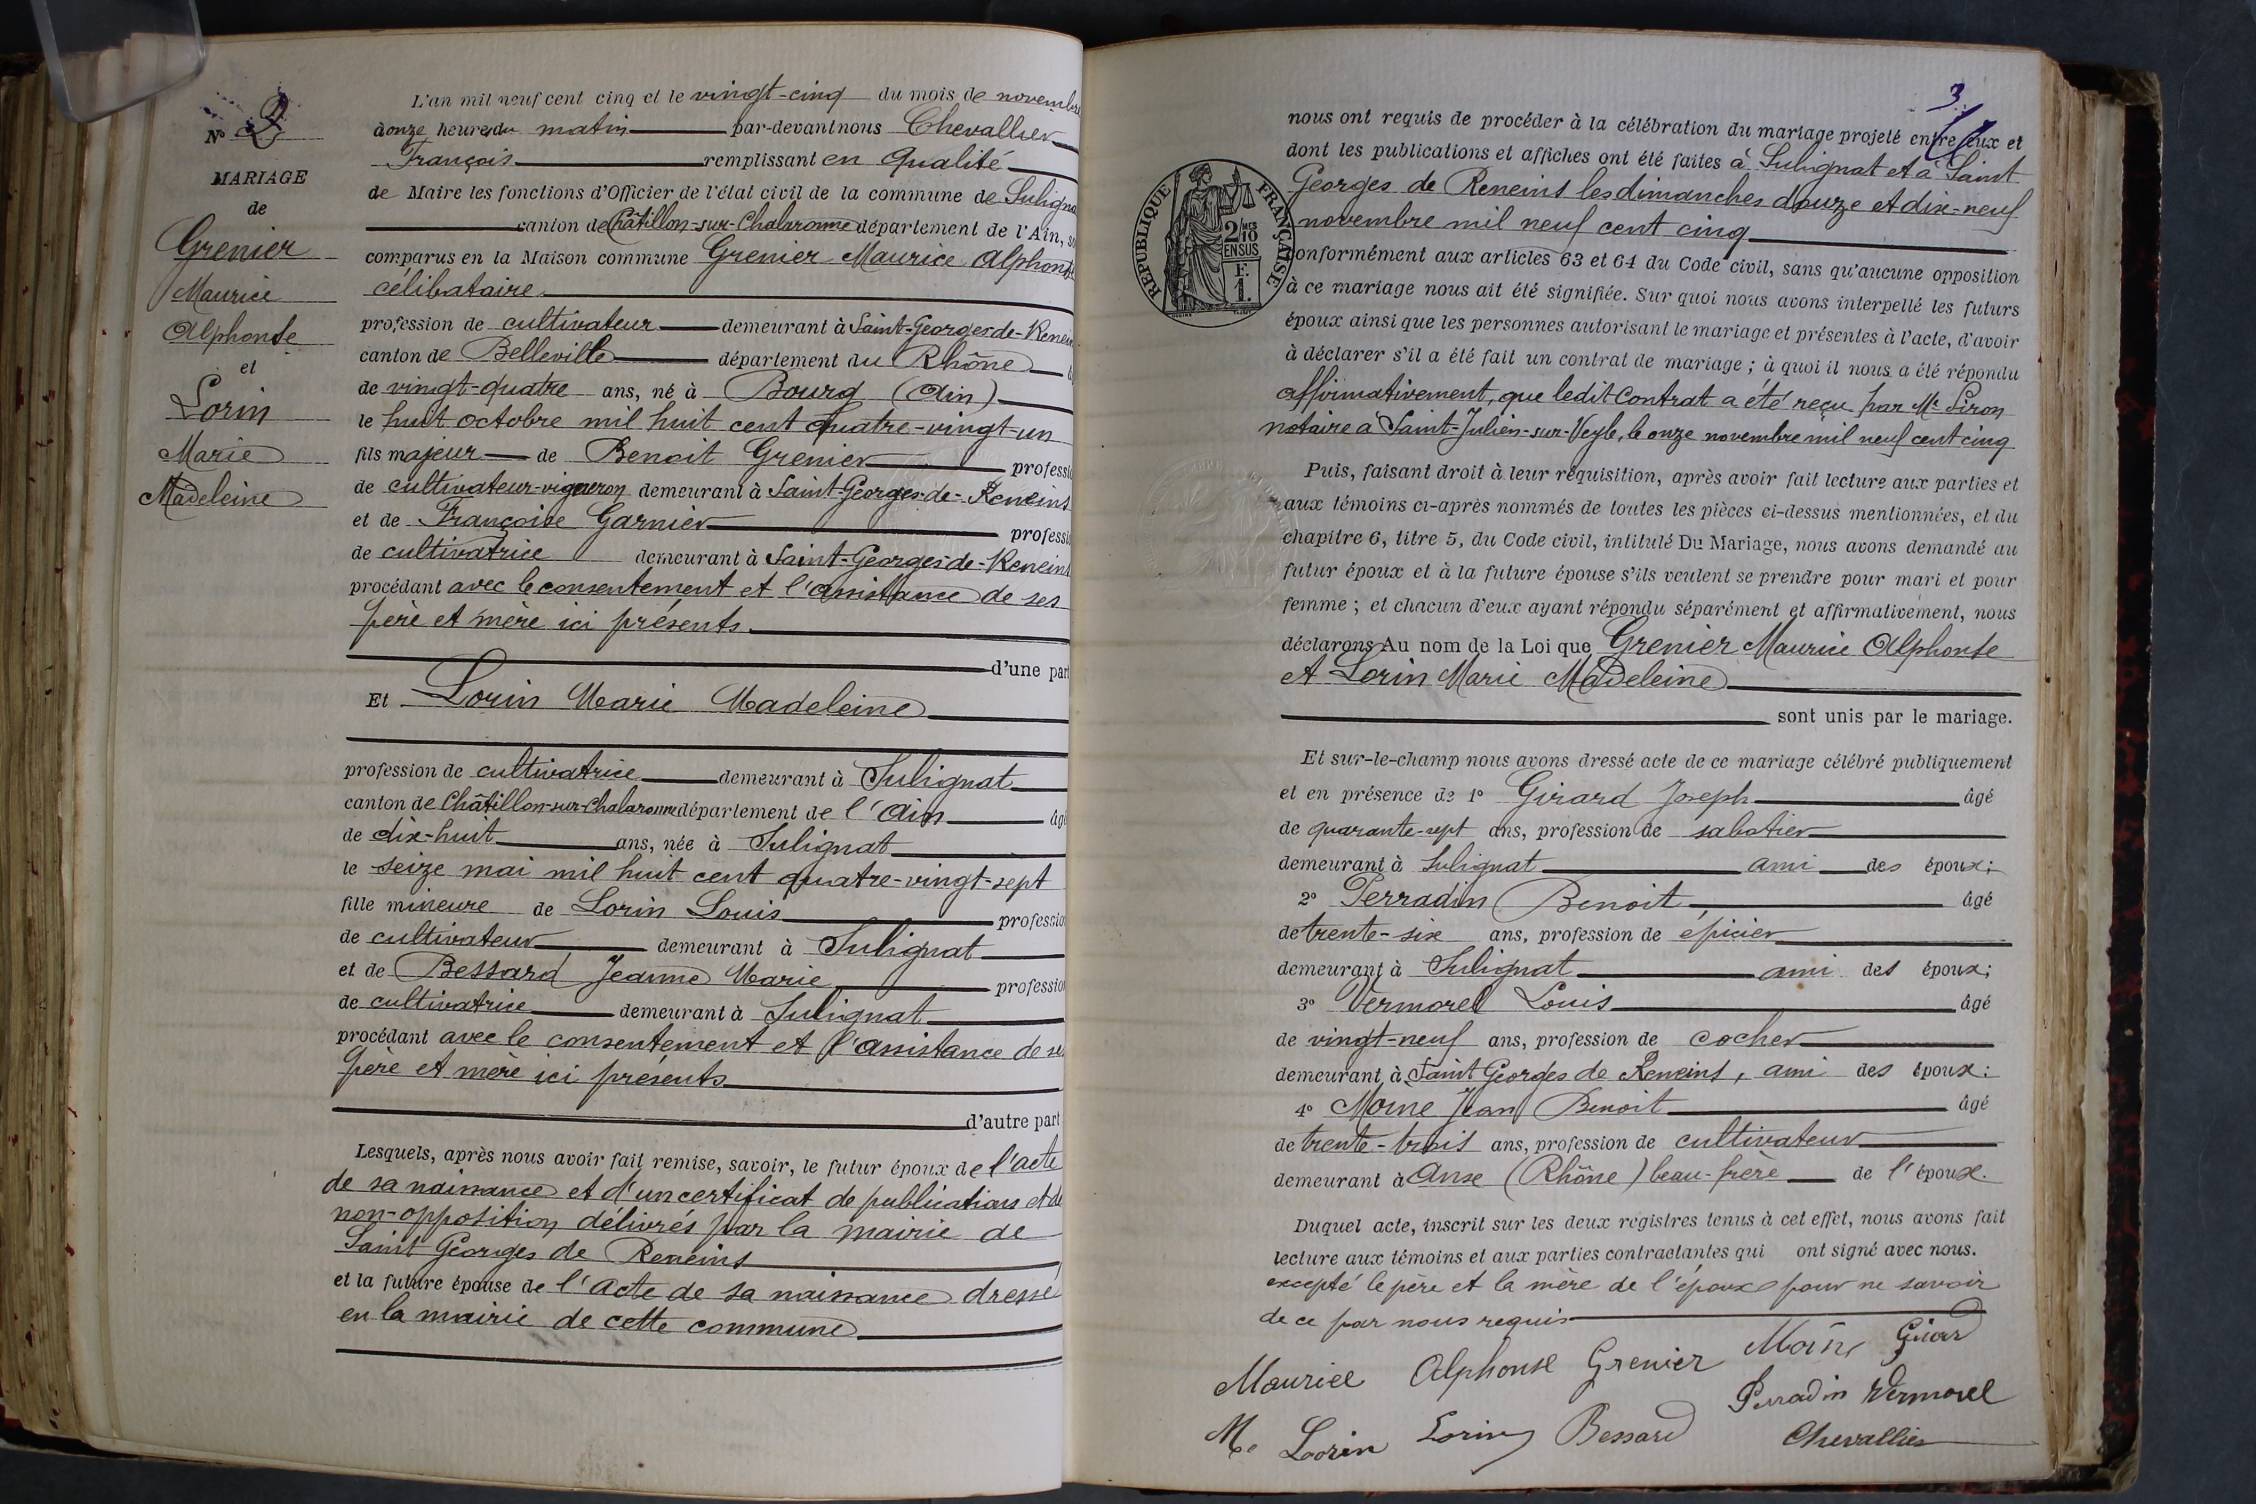 N° 2
MARIAGE
de
Grenier
Maurice
Alphonse
et
Lorin
Marie
Madeleine
L'an mil neuf cent cinq et le vingt-cinq du mois de novembre
à onze heures du matin par-devant nous Chevallier
François remplissant en qualité
de Maire les fonctions d'Officier de l'état civil de la commune de Suligna
canton de Châtillon-sur-Chalaronne département de l'Ain, so
comparus en la Maison commune Grenier Maurice Alphonse
célibataire
profession de cultivateur demeurant à Saint-Georges-de-Renein
canton de Belleville département du Rhône
de vingt-quatre ans, né à Bourg (Ain)
le huit octobre mil huit cent quatre-vingt-un
fils majeur de Benoit Grenier professi
de cultivateur-vigneron demeurant à Saint-Georges-de-Reneins
et de Françoise Garnier professi
de cultivatrice demeurant à Saint-Georges-de-Reneins
procédant avec le consentement et l'assistance de ses
père et mère ici présents
d'une part
Et Lorin Marie Madeleine
profession de cultivatrice demeurant à Sulignat
canton de Châtillon-sur-Chalaronne département de l'Ain âgé
de dix-huit ans, née à Sulignat
le seize mai mil huit cent quatre-vingt-sept
fille mineure de Lorin Louis profession
de cultivateur demeurant à Sulignat
et de Bessard Jeanne Marie profession
de cultivatrice demeurant à Sulignat
procédant avec le consentement et l'assistance de ses
père et mère ici présents
d'autre part
Lesquels, après nous avoir fait remise, savoir, le futur époux de l'acte
de sa naissance et d'un certificat de publications et de
non-opposition, délivrés par la mairie de
Saint Georges de Reneins
et la future épouse de l'acte de sa naissance dressé
en la mairie de cette commune
3
nous ont requis de procéder à la célébration du mariage projeté entre eux et
dont les publications et affiches ont été faites à Sulignat et à Saint
Georges de Reneins les dimanches douze et dix-neuf
novembre mil neuf cent cinq
conformément aux articles 63 et 64 du Code civil, sans qu'aucune opposition
à ce mariage nous ait été signifiée. Sur quoi nous avons interpellé les futurs
époux ainsi que les personnes autorisant le mariage et présentes à l'acte, d'avoir
à déclarer s'il a été fait un contrat de mariage ; à quoi il nous a été répondu
affirmativement, que ledit contrat a été reçu par Me Siron
notaire à Saint-Julien-sur-Veyle, le onze novembre mil neuf cent cinq
RÉPUBLIQUE FRANÇAISE
2/10
EN SUS
F.
1.
Puis, faisant droit à leur réquisition, après avoir fait lecture aux parties et
aux témoins ci-après nommés de toutes les pièces ci-dessus mentionnées, et du
chapitre 6, titre 5, du Code civil, intitulé Du Mariage, nous avons demandé au
futur époux et à la future épouse s'ils veulent se prendre pour mari et pour
femme ; et chacun d'eux ayant répondu séparément et affirmativement, nous
déclarons Au nom de la Loi que Grenier Maurice Alphonse
et Lorin Marie Madeleine
sont unis par le mariage.
Et sur-le-champ nous avons dressé acte de ce mariage célébré publiquement
et en présence de 1° Girard Joseph âgé
de quarante-sept ans, profession de sabotier
demeurant à Sulignat ami des époux;
2° Perradin Benoit âgé
de trente-six ans, profession de épicier
demeurant à Sulignat ami des époux;
3° Vermorel Louis âgé
de vingt-neuf ans, profession de cocher
demeurant à Saint Georges de Reneins, ami des époux:
4° Moine Jean Benoit âgé
de trente-trois ans, profession de cultivateur
demeurant à Anse (Rhône) beau-frère de l'époux.
Duquel acte, inscrit sur les deux registres tenus à cet effet, nous avons fait
lecture aux témoins et aux parties contractantes qui ont signé avec nous.
excepté le père et la mère de l'époux pour ne savoir
de ce par nous requis
Maurice Alphonse Grenier Moine Girard
Perradin Vermorel
M. Lorin Lorin Bessard Chevallier